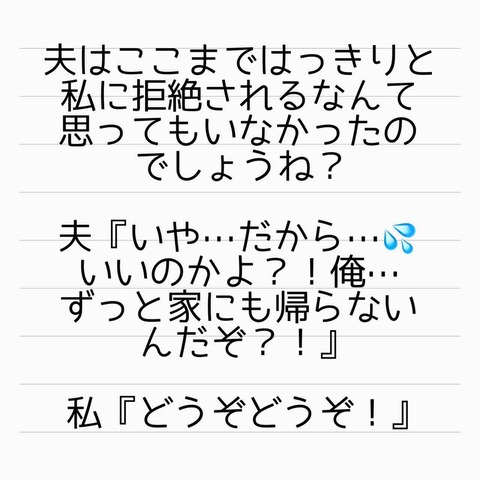 夫はここまではっきりと
私に拒絶されるなんて
思ってもいなかったの
でしょうね？
夫『いや…だから…💦
いいのかよ？！俺…
ずっと家にも帰らない
んだぞ？！』
私『どうぞどうぞ！』